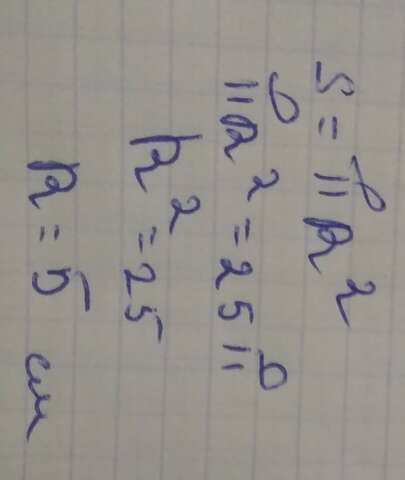 S = πR²
πR² = 25π
R² = 25
R = 5 см